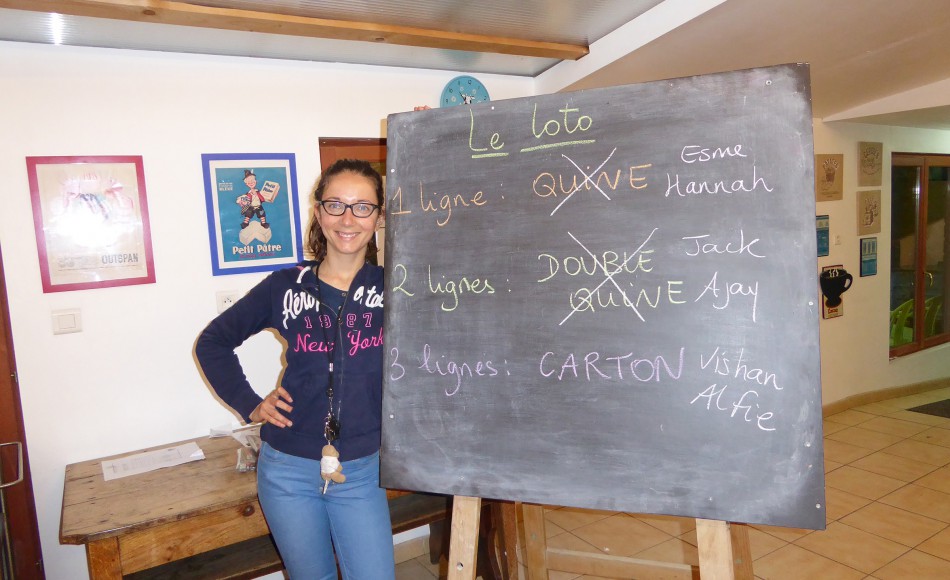 Le loto
1 ligne : QUINE Esme
Hannah
2 lignes : DOUBLE Jack
QUINE Ajay
3 lignes : CARTON Vishan
Alfie
OUTSPAN
Petit Pâtre
1987
New York